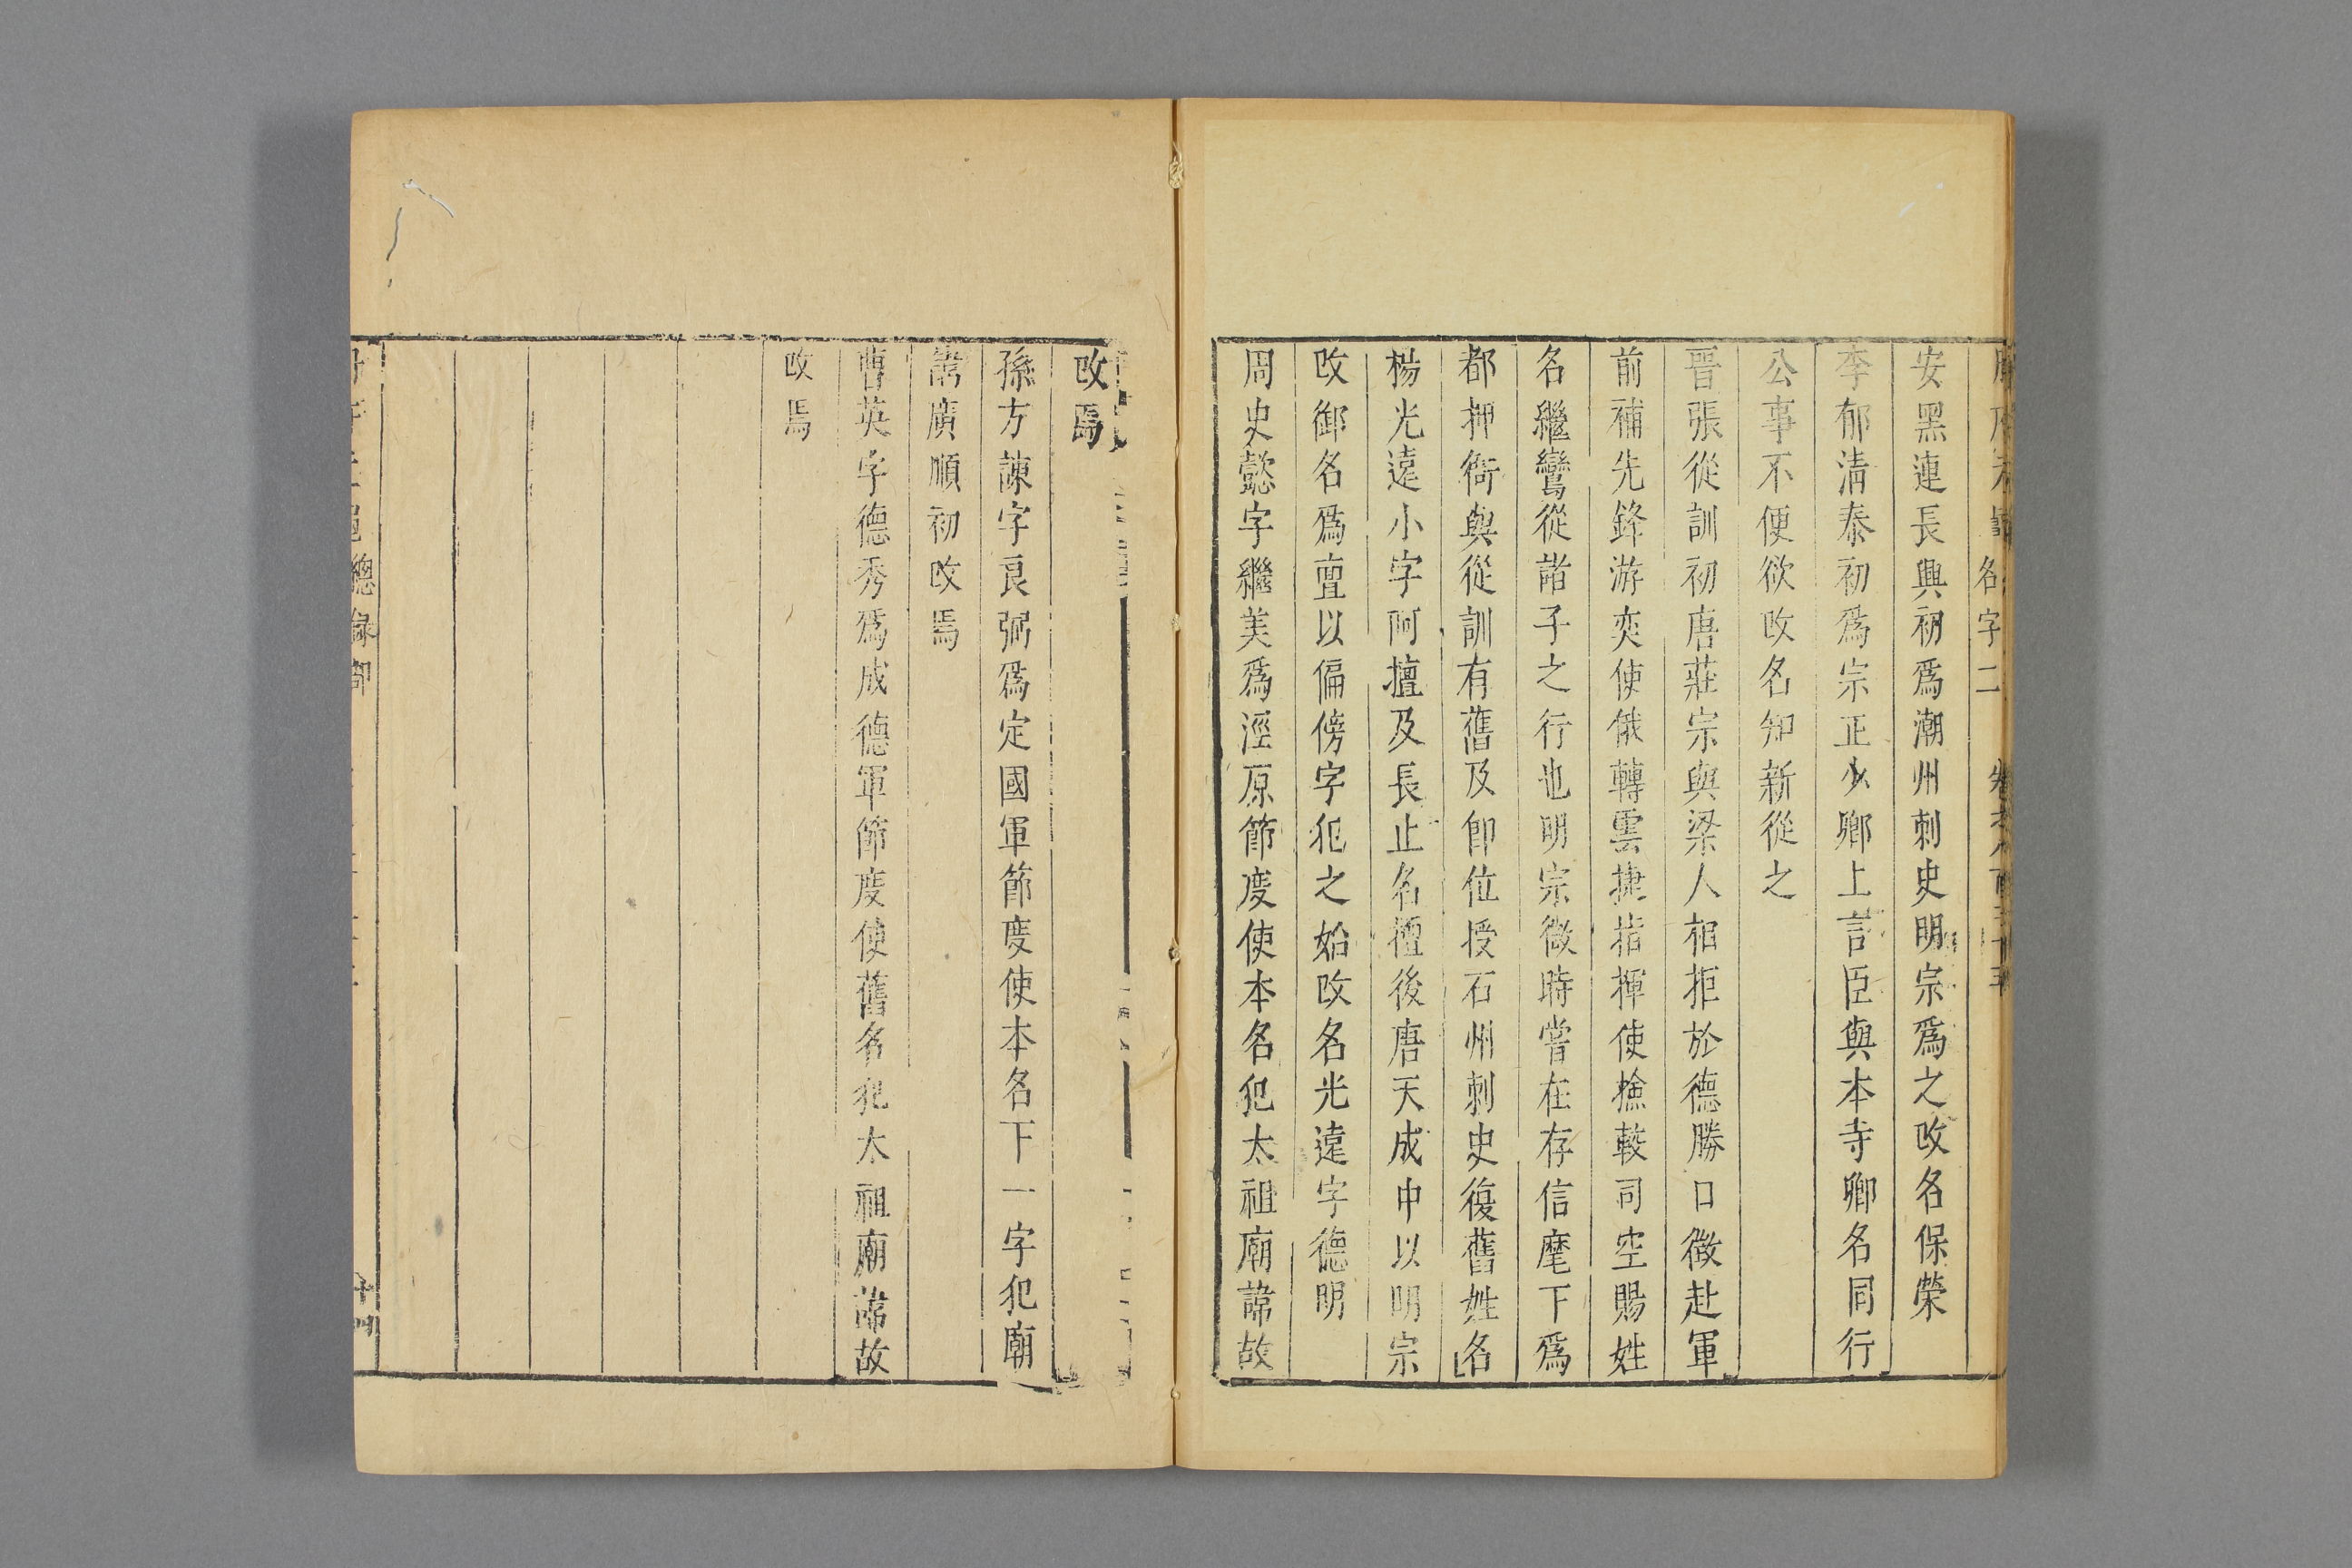 名字二
安黑連長興初爲潮州刺史明宗爲之改名保榮
李郁清泰初爲宗正少卿上言臣與本寺卿名同行
公事不便欲改名知新從之
晉張從訓初唐莊宗與梁人相拒於德勝口徵赴軍
前補先鋒游奕使俄轉雲捷指揮使撿較司空賜姓
名繼鸞從諸子之行也明宗微時嘗在存信麾下爲
都押衙與從訓有舊及卽位授石州刺史復舊姓名
楊光遠小字阿擅及長止名檀後唐天成中以明宗
改御名爲亶以偏傍字犯之始改名光遠字德明
周史懿字繼美爲涇原節度使本名犯太祖廟諱故
改焉
孫方諫字良弼爲定國軍節度使本名下一字犯廟
諱廣順初改焉
曹英字德秀爲成德軍節度使舊名犯太祖廟諱故
改焉
總錄部
十四